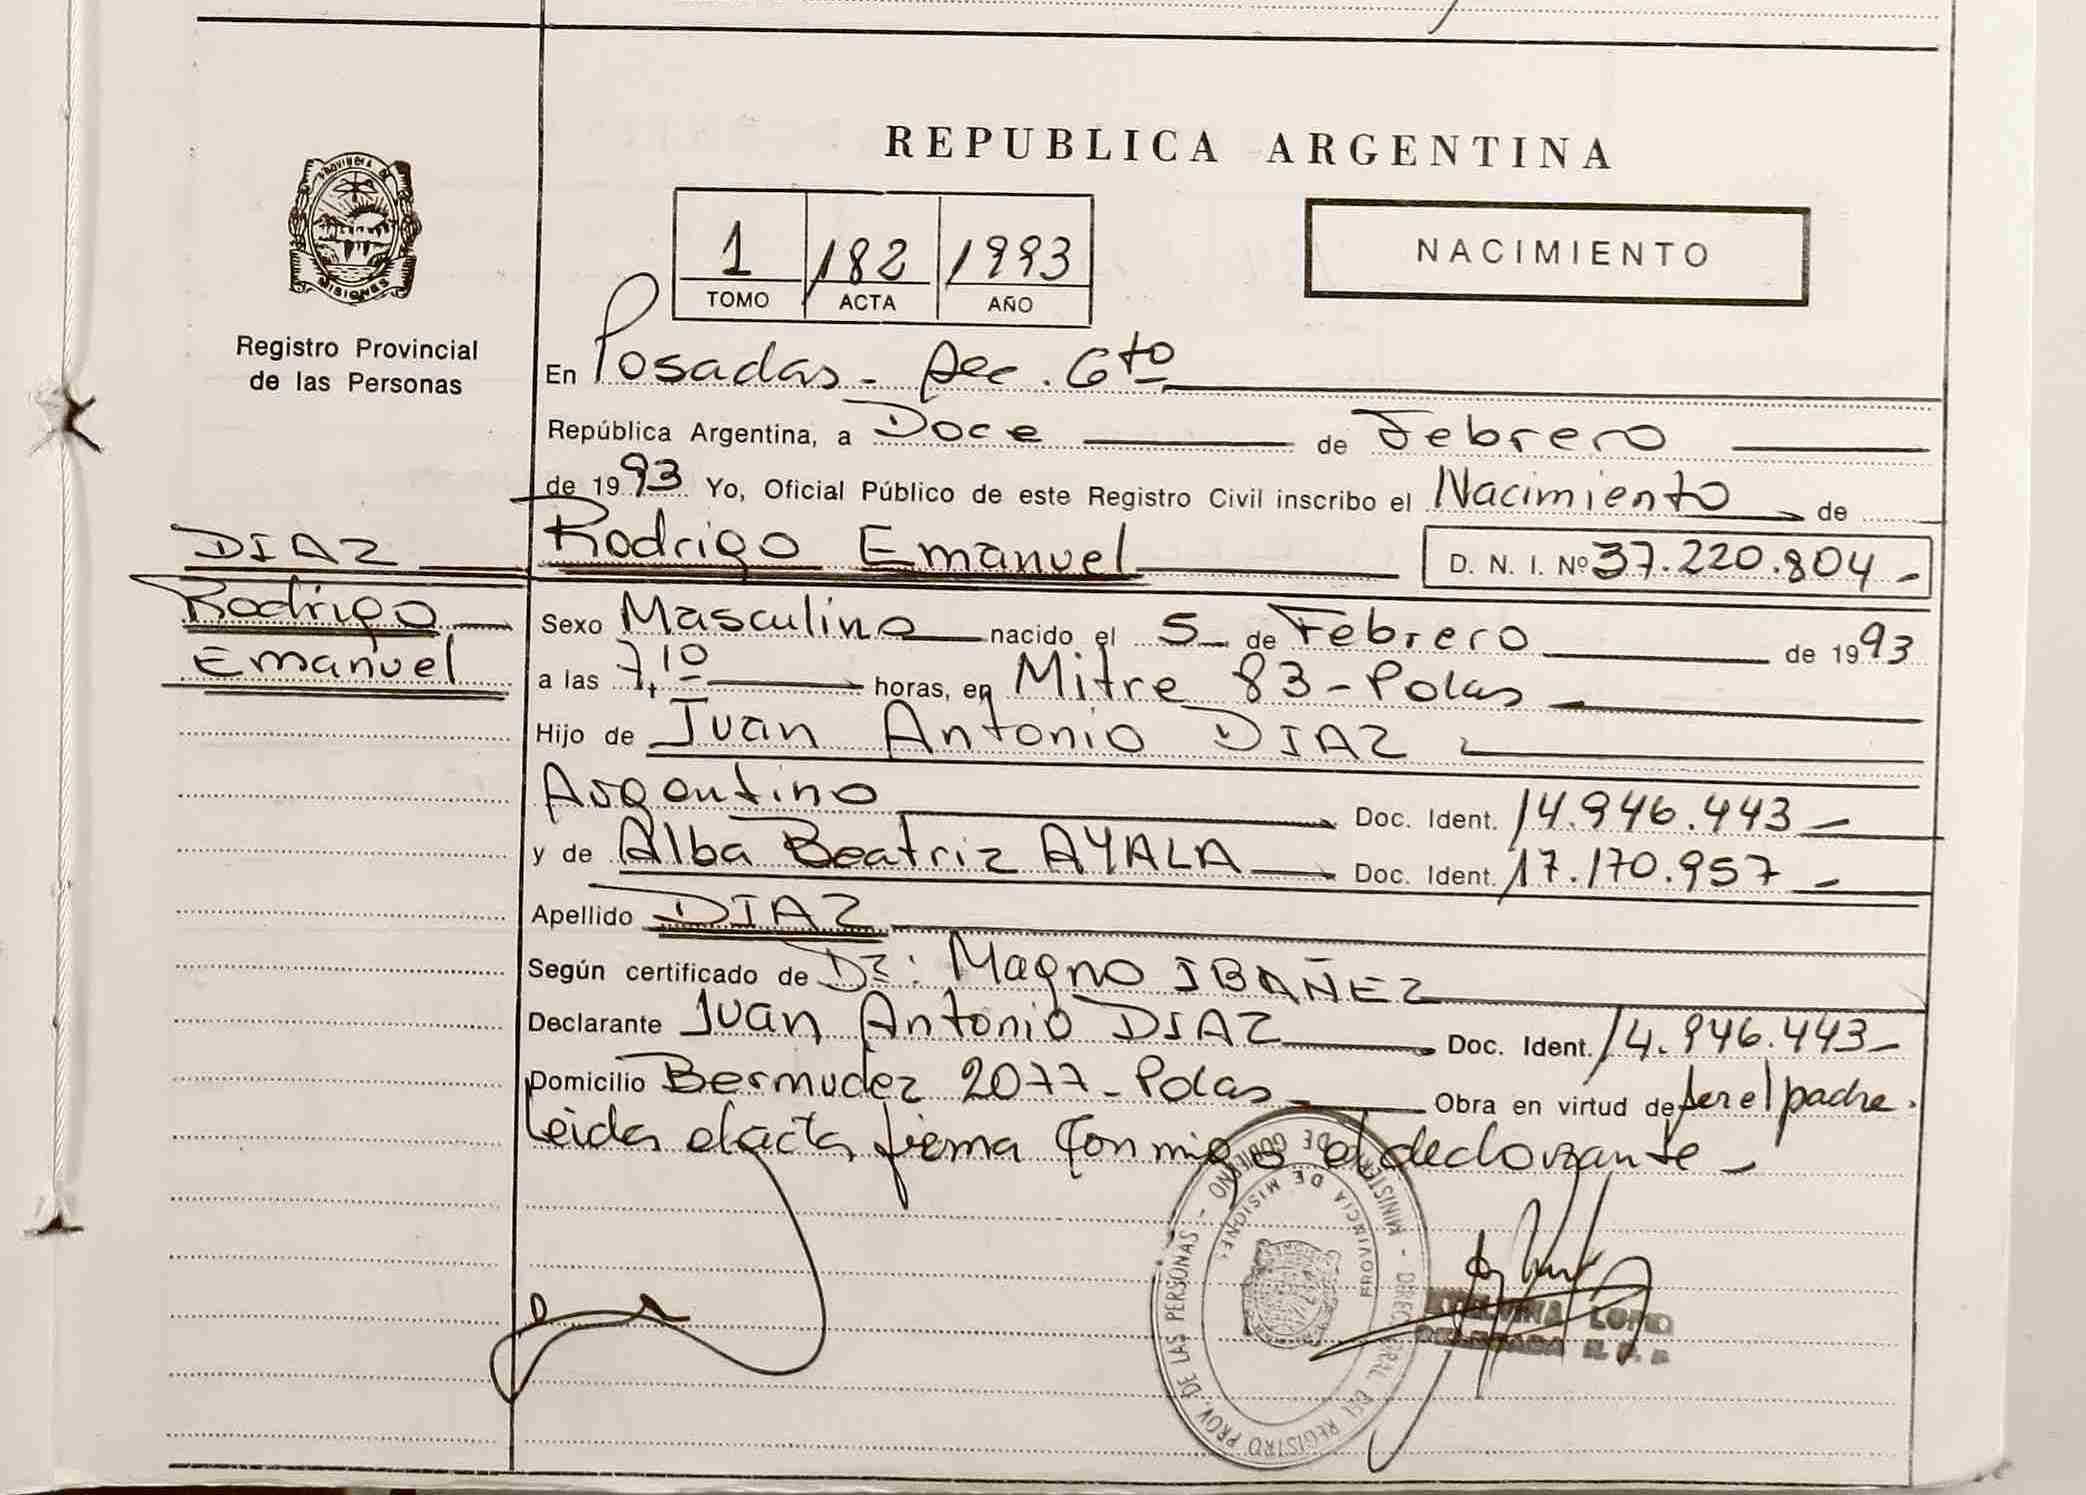 REPUBLICA ARGENTINA
PROVINCIA DE
MISIONES
Registro Provincial
de las Personas
1 182 1993
TOMO ACTA AÑO
NACIMIENTO
En Posadas - Sec. 6to
República Argentina, a Doce de Febrero
de 1993 Yo, Oficial Público de este Registro Civil inscribo el Nacimiento de
DIAZ
Rodrigo
Emanuel
Rodrigo Emanuel D. N. I. Nº 37.220.804 -
Sexo Masculino nacido el 5 de Febrero de 1993
a las 7,10 horas, en Mitre 83 - Pdas
Hijo de Juan Antonio DIAZ
Argentino Doc. Ident. 14.946.443 -
y de Alba Beatriz AYALA Doc. Ident. 17.170.957 -
Apellido DIAZ
Según certificado de Dr: Magno IBAÑEZ
Declarante Juan Antonio DIAZ Doc. Ident. 14.946.443 -
Domicilio Bermudez 2077 - Pdas Obra en virtud de ser el padre.
Leida el acta firma conmigo el declarante -
MINISTERIO DE GOBIERNO - DIREC. GRAL. DEL REGISTRO PROV. DE LAS PERSONAS -
PROVINCIA DE MISIONES